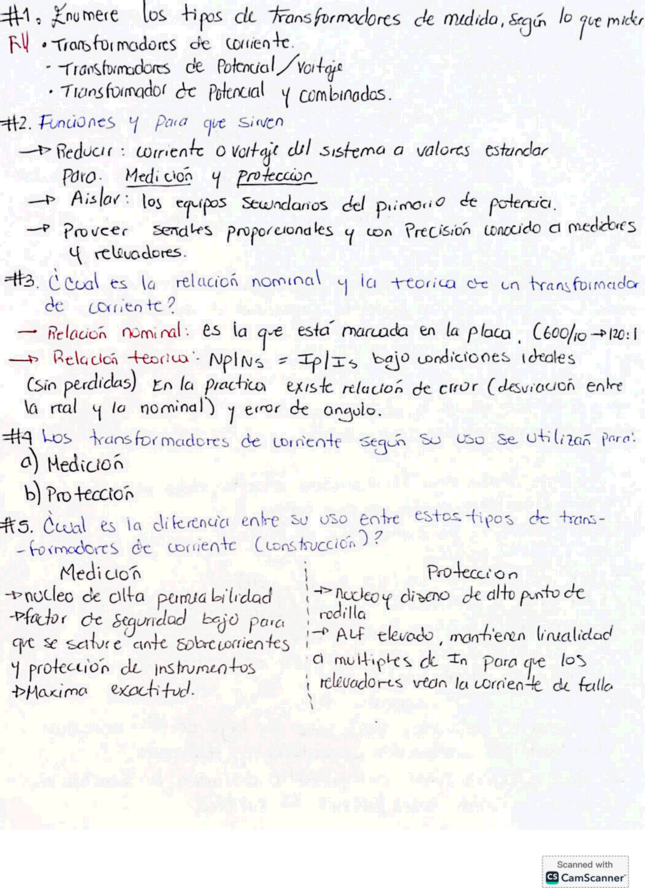 #1. Enumere los tipos de transformadores de medida, según lo que miden
R// • Transformadores de corriente.
• Transformadores de Potencial/Voltaje
• Transformador de Potencial y combinados.
#2. Funciones y Para que sirven
→ Reducir: corriente o voltaje del sistema a valores estandar
para. Medición y protección
→ Aislar: los equipos secundarios del primario de potencia.
→ Proveer señales proporcionales y con Precisión conocido a medidores
y relevadores.
#3. ¿Cual es la relación nominal y la teorica de un transformador
de corriente?
→ Relación nominal: es la que está marcada en la placa. (600/10 → 120:1
→ Relación teorica: NP/NS = IP/IS bajo condiciones ideales
(sin perdidas) En la practica existe relación de error (desviación entre
la real y la nominal) y error de angulo.
#4 Los transformadores de corriente según su uso se utilizan para:
a) Medición
b) Protección
#5. ¿Cual es la diferencia entre su uso entre estos tipos de trans-
-formadores de corriente (construcción)?
Medición
→ nucleo de alta permiabilidad
→ factor de seguridad bajo para
que se sature ante sobrecorrientes
y protección de instrumentos
→ Maxima exactitud.
Protección
→ Nucleo y diseño de alto punto de
rodilla
→ ALF elevado, mantienen linealidad
a multiples de In para que los
relevadores vean la corriente de falla
Scanned with
CS CamScanner